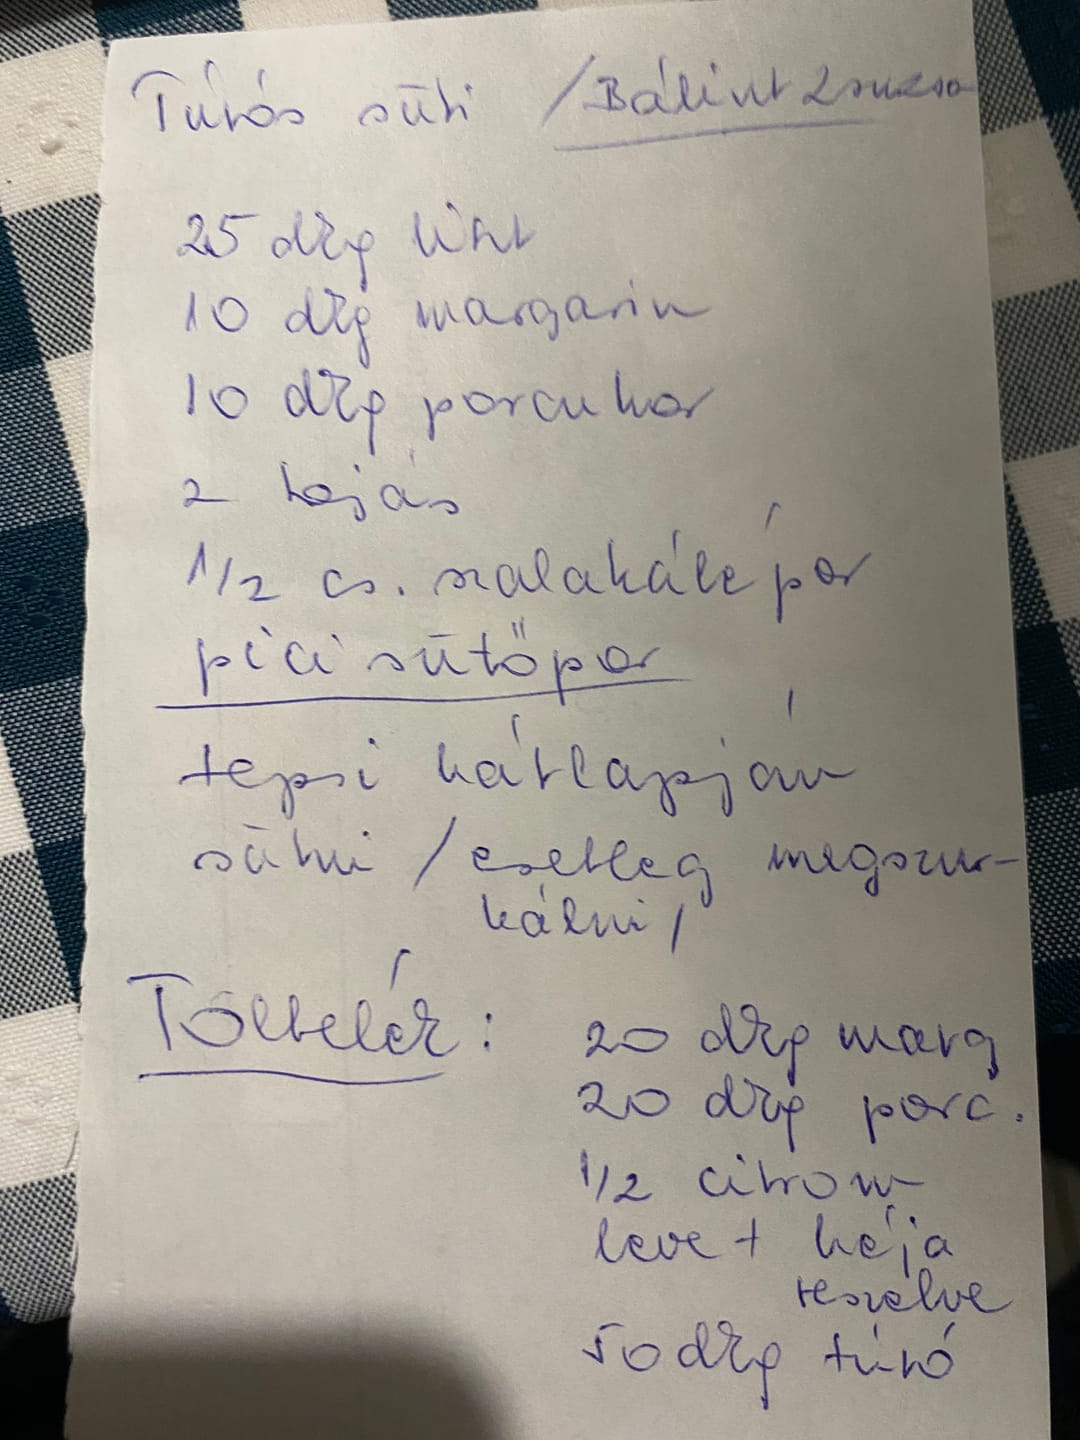 Túrós süti / Bálint Zsuzsa
25 dkg liszt
10 dkg margarin
10 dkg porcukor
2 tojás
1/2 cs. szalakálé por
pici sütőpor
tepsi hátlapján
sütni / esetleg megszur-
kálni /
Töltelék:
20 dkg marg
20 dkg porc.
1/2 citrom
leve + héja
reszelve
50 dkg túró